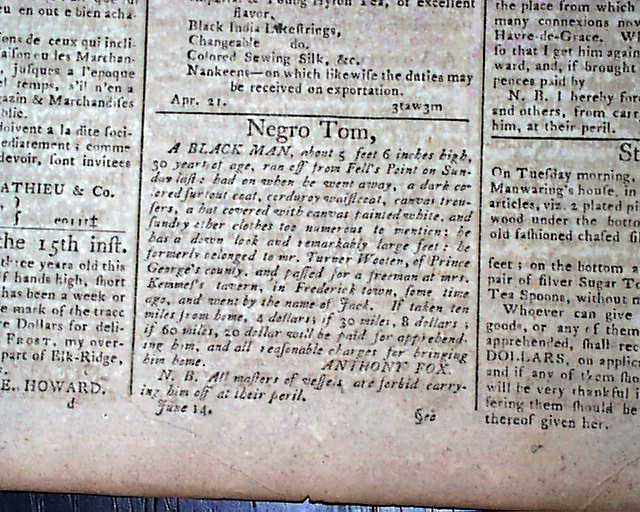 eu en out e bien acha-
ons de ceux qui incli-
aiſon eu les Marchan-
, juſques a l'epoque
el temps, s'il n'en a
gazin & Marchandiſes
blic.
doivent a la dite ſoci-
ediatement; comme
devoir, ſont invitees
MATHIEU & Co.
}
}
the 15th inſt.
three years old this
f hands high, ſhort
has been a week or
e mark of the trace
re Dollars for deli-
FROST, my over-
part of Elk-Ridge,
E. HOWARD.
d
Tea, of excellent
flavor,
Black India Lakeſtrings,
Changeable do.
Colored Sewing Silk, &c.
Nankeens—on which likewiſe the duties may
be received on exportation.
Apr. 21. 3taw3m
Negro Tom,
A BLACK MAN, about 5 feet 6 inches high,
30 years of age, ran off from Fell's Point on Sun-
day laſt: had on when he went away, a dark co-
ered ſurtout coat, corduroy waiſtcoat, canvas trou-
ſers, a hat covered with canvas painted white, and
ſundry other clothes too numerous to mention; he
has a down look and remarkably large feet; he
formerly belonged to mr. Turner Wooten, of Prince
George's county, and paſſed for a freeman at mrs.
Kemmel's tavern, in Frederick town, ſome time
ago, and went by the name of Jack. If taken ten
miles from home, 4 dollars; if 30 miles, 8 dollars;
if 60 miles, 20 dollar will be paid for apprehend-
ing him, and all reaſonable charges for bringing
him home. ANTHONY FOX.
N. B. All maſters of veſſels are forbid carry-
ing him off at their peril.
June 14. §eo
the place from which
many connexions nov
Havre-de-Grace. Wh
ſo that I get him again
ward, and, if brought
pences paid by
N. B. I hereby for
and others, from carr
him, at their peril.
St
On Tueſday morning,
Manwaring's houſe, in
articles, viz. 2 plated pi
wood under the botto
old faſhioned chaſed ſi
feet; on the bottom a
pair of ſilver Sugar T
Tea Spoons, without m
Whoever can give
goods, or any of them
apprehended, ſhall rec
DOLLARS, on applic
and if any of them ſhou
will be very thankful i
fering them ſhould be
thereof given her.